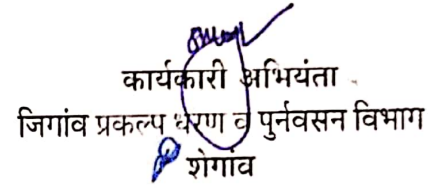 कार्यकारी अभियंता
जिगांव प्रकल्प धरण व पुर्नवसन विभाग
शेगांव